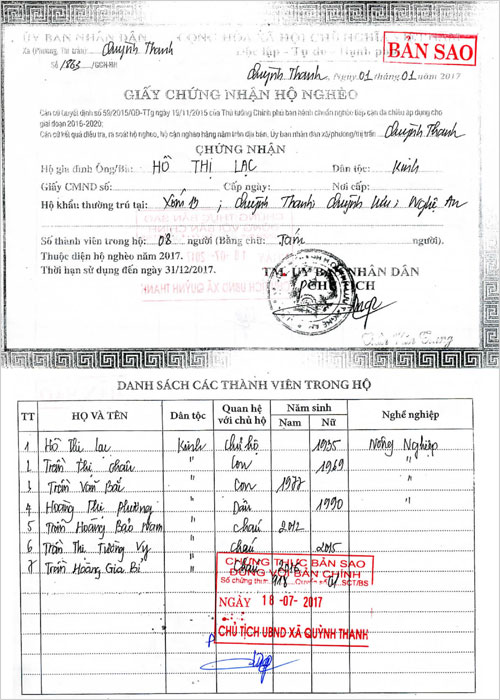 ỦY BAN NHÂN DÂN
CỘNG HÒA XÃ HỘI CHỦ NGHĨA
Xã (Phường, Thị trấn) Quỳnh Thanh
Độc lập - Tự do - Hạnh
BẢN SAO
Số 1863/GCN-HN
Quỳnh Thanh, Ngày 01 tháng 01 năm 2017
GIẤY CHỨNG NHẬN HỘ NGHÈO
Căn cứ Quyết định số 59/2015/QĐ-TTg ngày 19/11/2015 của Thủ tướng Chính phủ ban hành chuẩn nghèo tiếp cận đa chiều áp dụng cho
giai đoạn 2016-2020;
Căn cứ kết quả điều tra, rà soát hộ nghèo, hộ cận nghèo hàng năm trên địa bàn, Ủy ban nhân dân xã/phường/thị trấn Quỳnh Thanh
CHỨNG NHẬN
Hộ gia đình Ông/Bà: HỒ THỊ LẠC Dân tộc: Kinh
Giấy CMND số: Cấp ngày: Nơi cấp:
Hộ khẩu thường trú tại: Xóm 13, Quỳnh Thanh, Quỳnh Lưu, Nghệ An
Số thành viên trong hộ: 08 người (Bằng chữ: Tám người).
Thuộc diện hộ nghèo năm 2017.
Thời hạn sử dụng đến ngày 31/12/2017.
TM. ỦY BAN NHÂN DÂN
PHÓ CHỦ TỊCH
DANH SÁCH CÁC THÀNH VIÊN TRONG HỘ
TT HỌ VÀ TÊN Dân tộc Quan hệ với chủ hộ Năm sinh Nghề nghiệp
Nam Nữ
1 Hồ Thị Lạc Kinh Chủ hộ 1935 Nông Nghiệp
2 Trần Thị Châu " Con 1969 "
3 Trần Văn Bắc " Con 1977 "
4 Hoàng Thị Phương " Dâu 1990 "
5 Trần Hoàng Bảo Nam " cháu 2012
6 Trần Thị Tường Vy " cháu 2015
7 Trần Hoàng Gia Bi " cháu 2016
CHỨNG THỰC BẢN SAO
ĐÚNG VỚI BẢN CHÍNH
Số chứng thực 118 Quyển số 01 SCT/BS
NGÀY 18-07-2017
CHỦ TỊCH UBND XÃ QUỲNH THANH